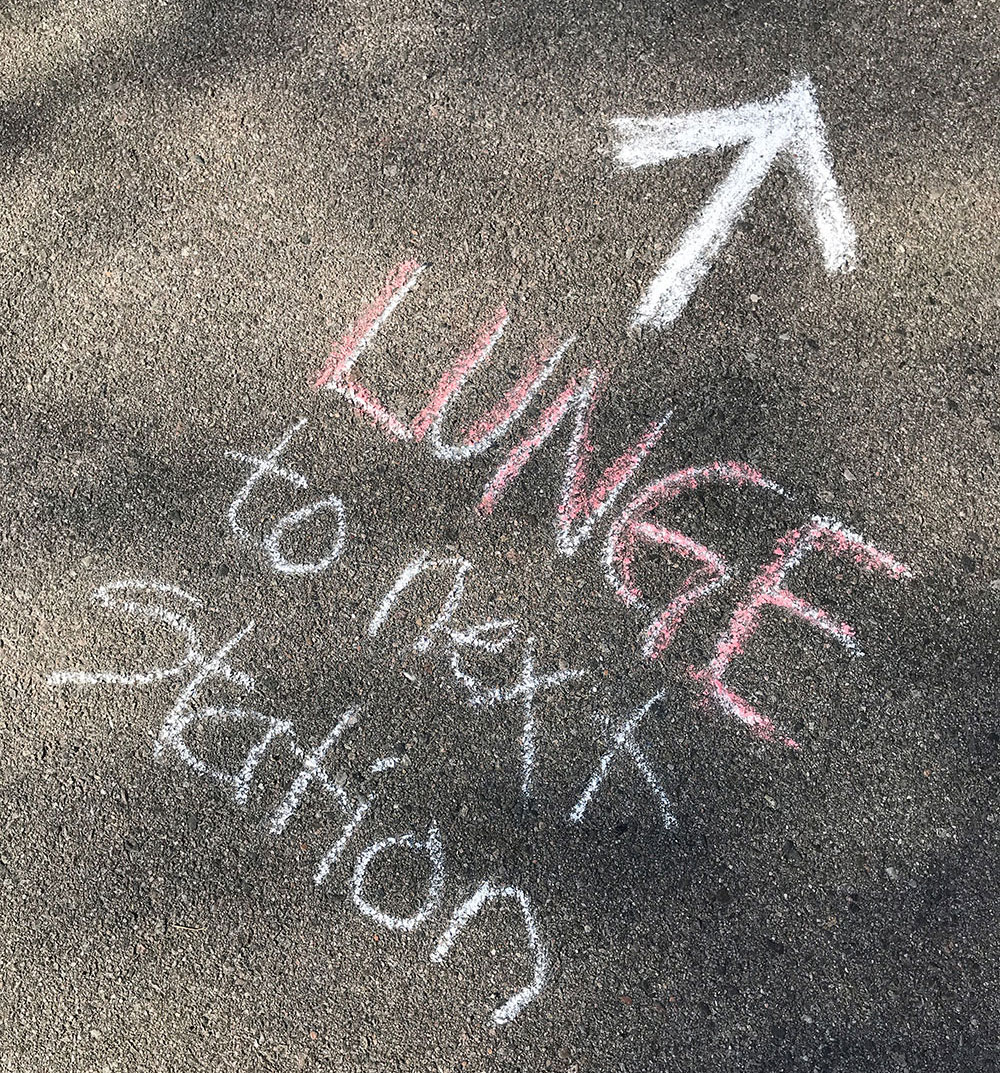 LUNGE
to next
Station